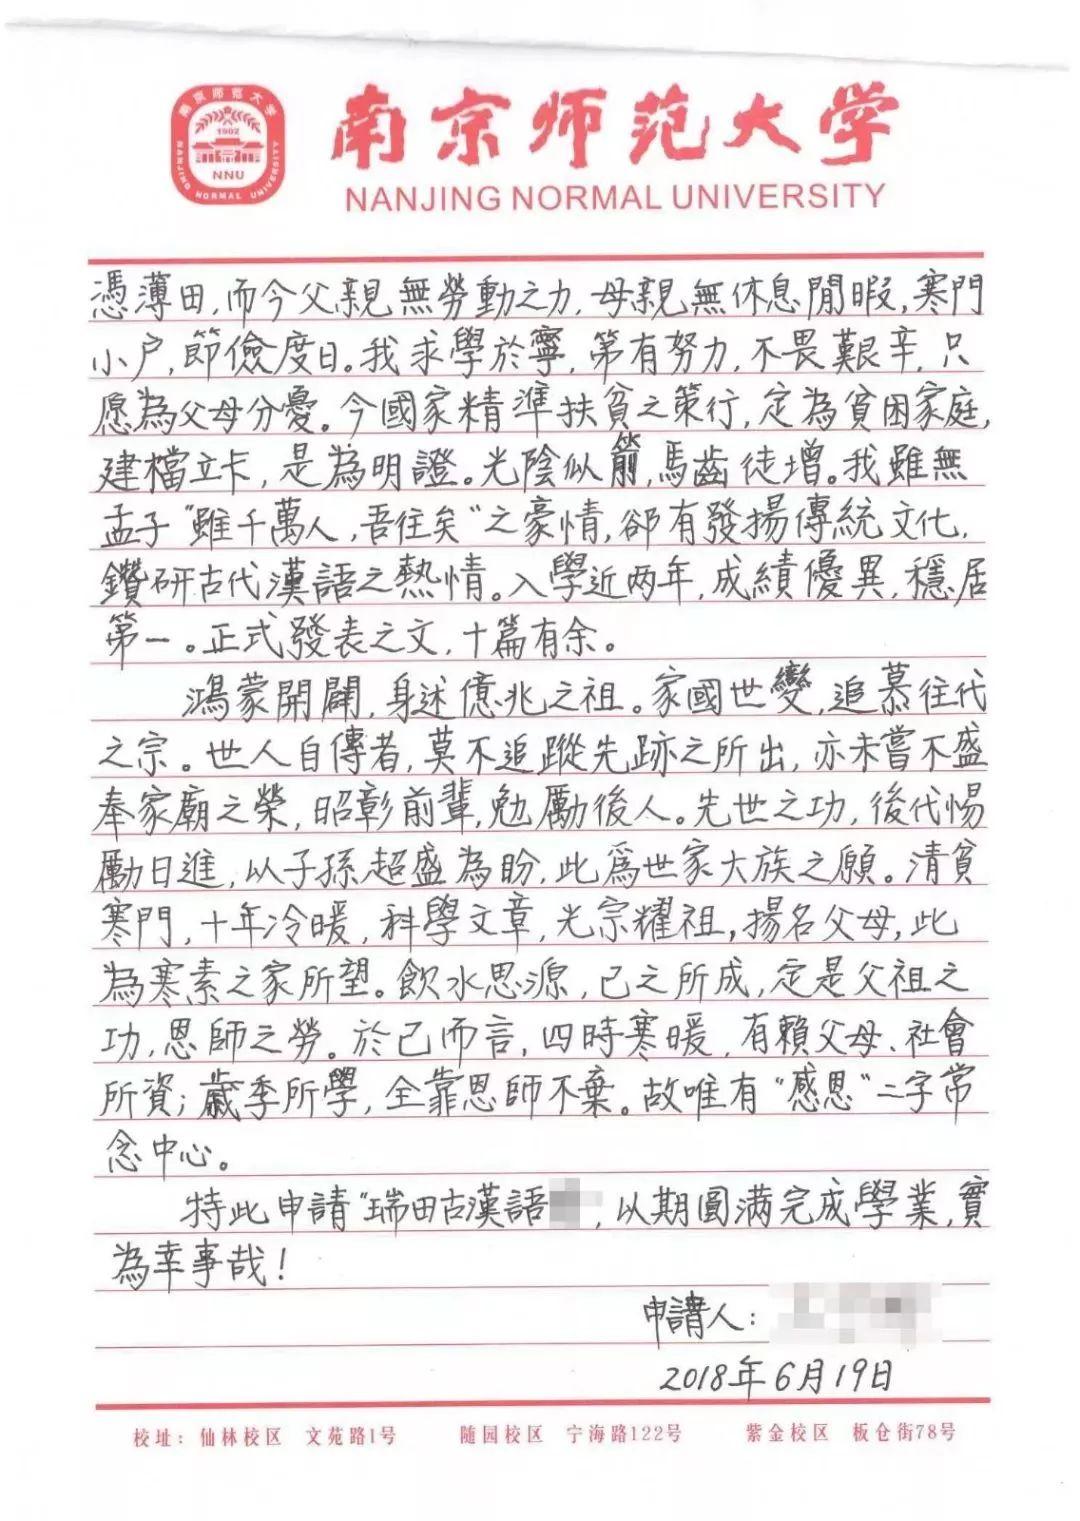 南京师范大学
1902
NNU
NANJING NORMAL UNIVERSITY
南京师范大学
NANJING NORMAL UNIVERSITY
憑薄田,而今父親無勞動之力,母親無休息閒暇,寒門
小户,節儉度日。我求學於寧,第有努力,不畏艱辛,只
愿為父母分憂。今國家精準扶貧之策行,定為貧困家庭,
建檔立卡,是為明證。光陰似箭,馬齒徒增。我雖無
孟子“雖千萬人,吾往矣”之豪情,卻有發揚傳統文化,
鑽研古代漢語之熱情。入學近两年,成績優異,穩居
第一。正式發表之文,十篇有余。
鴻蒙開闢,身述億兆之祖。家國世變,追慕往代
之宗。世人自傳者,莫不追蹤先跡之所出,亦未嘗不盛
奉家廟之榮,昭彰前輩,勉勵後人。先世之功,後代惕
勵日進,以子孫超盛為盼,此爲世家大族之願。清貧
寒門,十年冷暖,科學文章,光宗耀祖,揚名父母,此
為寒素之家所望。飲水思源,己之所成,定是父祖之
功,恩師之勞。於己而言,四時寒暖,有賴父母、社會
所資;歲季所學,全靠恩師不棄。故唯有“感恩”二字常
念中心。
特此申請“瑞田古漢語,以期圓满完成學業,實
為幸事哉!
申請人:
2018年6月19日
校址:仙林校区 文苑路1号 随园校区 宁海路122号 紫金校区 板仓街78号